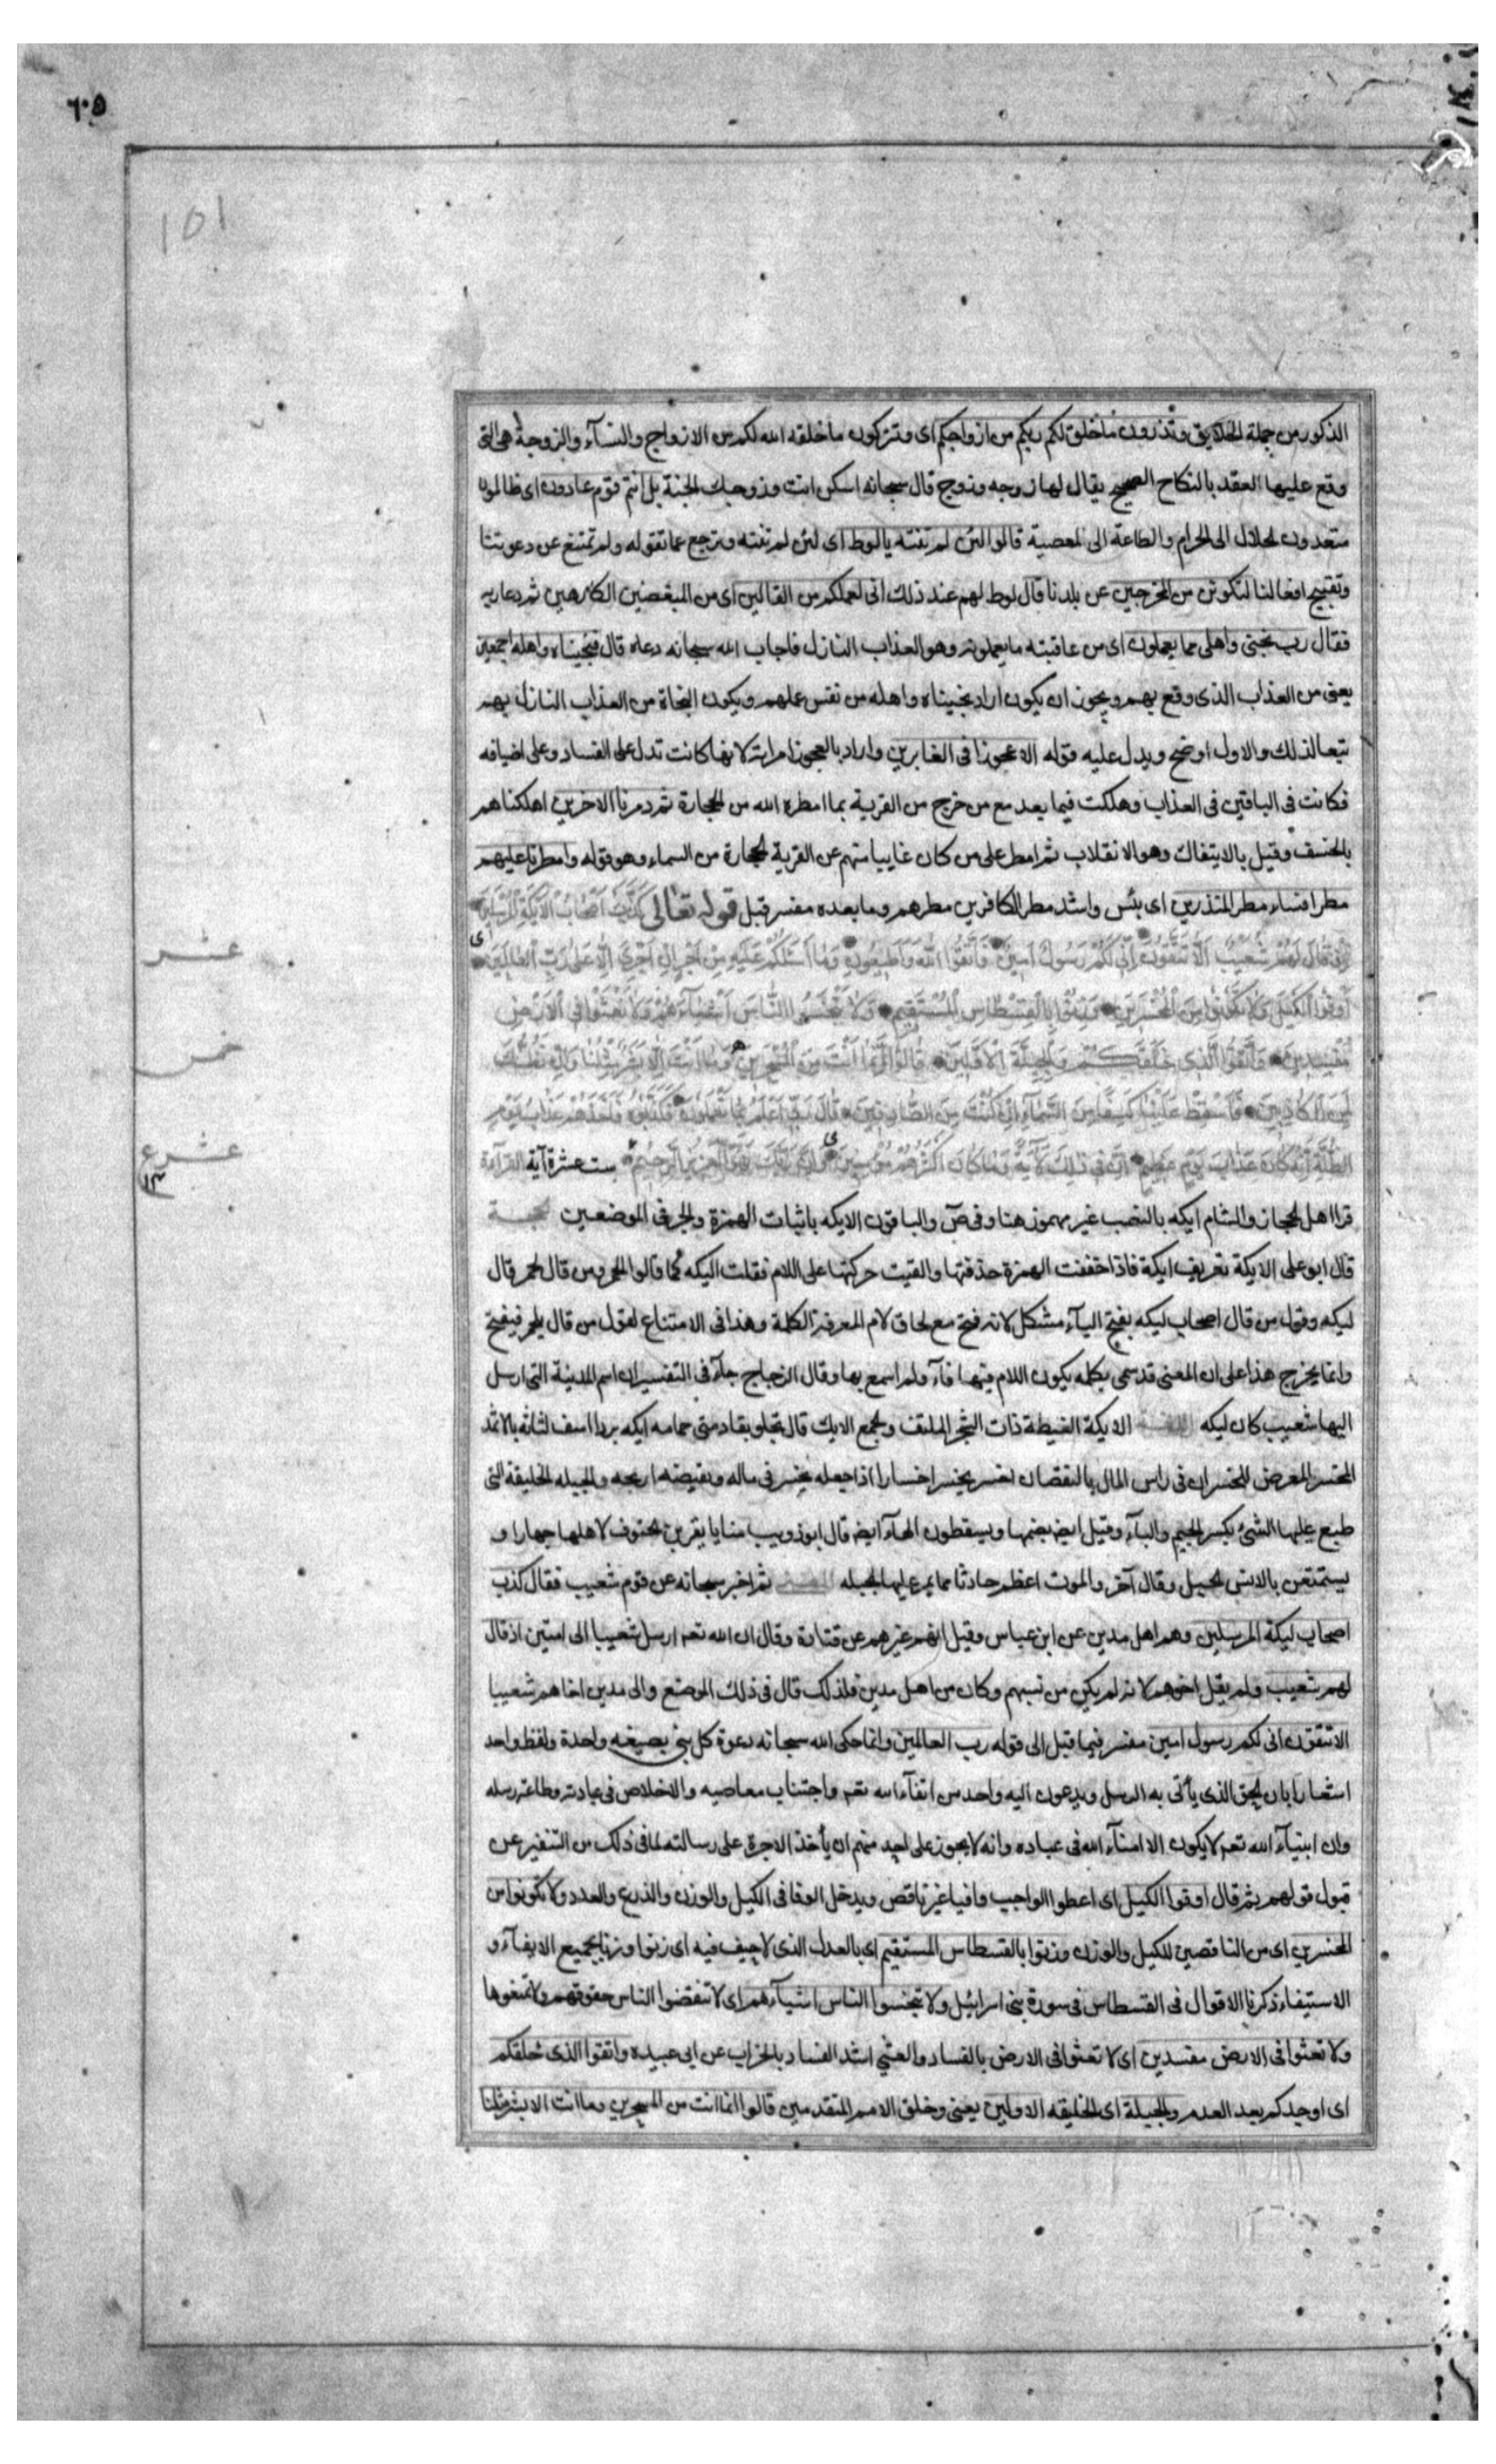 ٦٠٥
101
الذكور من جملة الخلايق وتذرون ما خلق لكم ربكم من ازواجكم اى وتتركون ما خلقه الله لكم من الازواج والنسآء والزوجة هى التى
وقع عليها العقد بالنكاح الصحيح يقال لها زوجه وزوج قال سبحانه اسكن انت وزوجك الجنة بل انتم قوم عادون اى ظالمون
متعدون الحلال الى الحرام والطاعة الى المعصية قالوا لئن لم تنته يالوط اى لئن لم تنته وترجع عما تقوله ولم تمتنع عن دعوتنا
وتقبيح افعالنا لتكونن من المخرجين عن بلدنا قال لوط لهم عند ذلك انى لعملكم من القالين اى من المبغضين الكارهين ثم دعا ربه
فقال رب نجنى واهلى مما يعملون اى من عاقبته ما يعملونه وهو العذاب النازل فاجاب الله سبحانه دعاه قال فنجيناه واهله اجمعين
يعنى من العذاب الذى وقع بهم ويجوز ان يكون اراد نجيناه واهله من نفس عملهم ويكون النجاة من العذاب النازل بهم
تبعا لذلك والاول اوضح ويدل عليه قوله الا عجوزا فى الغابرين واراد بالعجوز امراته لانها كانت تدل على الفساد وعلى اضيافه
فكانت فى الباقين فى العذاب وهلكت فيما بعد مع من خرج من القرية بما امطره الله من الحجارة ثم دمرنا الاخرين اهلكناهم
بالخسف وقيل بالايتفاك وهو الانقلاب ثم امطر على من كان غايبا منهم عن القرية الحجارة من السماء وهو قوله وامطرنا عليهم
مطرا فساء مطر المنذرين اى بئس واشد مطر الكافرين مطرهم وما بعده مفسر قبل قوله تعالى كَذَّبَ اَصْحَابُ الْاَيْكَةِ الْمُرْسَلِينَ
اِذْ قَالَ لَهُمْ شُعَيْبٌ اَلَا تَتَّقُونَ اِنِّى لَكُمْ رَسُولٌ اَمِينٌ فَاتَّقُوا اللّٰهَ وَاَطِيعُونِ وَمَا اَسْئَلُكُمْ عَلَيْهِ مِنْ اَجْرٍ اِنْ اَجْرِىَ اِلَّا عَلٰى رَبِّ الْعَالَمِينَ ى
اَوْفُوا الْكَيْلَ وَلَا تَكُونُوا مِنَ الْمُخْسِرِينَ وَزِنُوا بِالْقِسْطَاسِ الْمُسْتَقِيمِ وَلَا تَبْخَسُوا النَّاسَ اَشْيَآءَهُمْ وَلَا تَعْثَوْا فِى الْاَرْضِ
مُفْسِدِينَ وَاتَّقُوا الَّذِى خَلَقَكُمْ وَالْجِبِلَّةَ الْاَوَّلِينَ قَالُوا اِنَّمَا اَنْتَ مِنَ الْمُسَحَّرِينَ وَمَا اَنْتَ اِلَّا بَشَرٌ مِثْلُنَا وَاِنْ نَظُنُّكَ
لَمِنَ الْكَاذِبِينَ فَاَسْقِطْ عَلَيْنَا كِسَفًا مِنَ السَّمَآءِ اِنْ كُنْتَ مِنَ الصَّادِقِينَ قَالَ رَبِّى اَعْلَمُ بِمَا تَعْمَلُونَ فَكَذَّبُوهُ فَاَخَذَهُمْ عَذَابُ يَوْمِ
الظُّلَّةِ اِنَّهُ كَانَ عَذَابَ يَوْمٍ عَظِيمٍ اِنَّ فِى ذٰلِكَ لَاٰيَةً وَمَا كَانَ اَكْثَرُهُمْ مُؤْمِنِينَ وَاِنَّ رَبَّكَ لَهُوَ الْعَزِيزُ الرَّحِيمُ ست عشرة آية القرآءة
قرا اهل الحجاز والشام ايكه بالنصب غير مهموز هنا وفى صٓ والباقون الايكه باثبات الهمزة والجر فى الموضعين الحجة
قال ابو على الايكة تعريف ايكة فاذا خففت الهمزة حذفتها والقيت حركتها على اللام فقلت اليكه كما قالوا الحمر ومن قال لحمر قال
ليكه وقول من قال اصحاب ليكه بفتح اليآء مشكل لانه فتح مع لحاق لام المعرفة الكلمة وهذا فى الامتناع لقول من قال يلحمر فيفتح
وانما يخرج هذا على ان المعنى قد سمى بكلمه يكون اللام فيها فآء ولم اسمع بها وقال الزجاج جآء فى التفسير ان اسم المدينة التى ارسل
اليها شعيب كان ليكه اللغة الايكة الغيطة ذات الشجر الملتف والجمع الايك قال تجلو بقادمتى حمامه ايكه بردا اسف لثاته بالاثمد
المخسر المعرض للخسران فى راس المال بالنقصان اخسر يخسر اخسارا اذا جعله يخسر فى ماله ونقيضه اربحه والجبله الخليقة التى
طبع عليها الشئ بكسر الجيم والبآء وقيل ايضا بضمها ويسقطون الهآء ايضا قال ابو ذويب منايا يقربن الحتوف لاهلها جهارا و
يستمتعن بالانس الجبل وقال آخر والموت اعظم حادثا مما يمر على الجبله المعنى ثم اخبر سبحانه عن قوم شعيب فقال كذب
اصحاب ليكة المرسلين وهم اهل مدين عن ابن عباس وقيل انهم غيرهم عن قتادة وقال ان الله تعه ارسل شعيبا الى امتين اذ قال
لهم شعيب ولم يقل اخوهم لانه لم يكن من نسبهم وكان من اهل مدين فلذلك قال فى ذلك الموضع والى مدين اخاهم شعيبا
الا تتقون انى لكم رسول امين مفسر فيما قبل الى قوله رب العالمين وانما حكى الله سبحانه دعوة كل نبى بصيغه واحدة ولفظ واحد
اشعارا بان الحق الذى يأتى به الرسل ويدعون اليه واحد من اتقآء الله تعه واجتناب معاصيه والاخلاص فى عبادته وطاعة رسله
وان انبيآء الله تعه لا يكون الا امنآء الله فى عباده وانه لا يجوز على احد منهم ان يأخذ الاجرة على رسالته لما فى ذلك من التنفير عن
قبول قولهم ثم قال اوفوا الكيل اى اعطوا الواجب وافيا غير ناقص ويدخل الوفا فى الكيل والوزن والذرع والعدد ولا تكونوا من
المخسرين اى من الناقصين للكيل والوزن وزنوا بالقسطاس المستقيم اى بالعدل الذى لا حيف فيه اى زنوا وزنا يجمع الايفآء و
الاستيفاء ذكرنا الاقوال فى القسطاس فى سورة بنى اسرائيل ولا تبخسوا الناس اشيآءهم اى لا تنقضوا الناس حقوقهم ولا تمنعوها
ولا تعثوا فى الارض مفسدين اى لا تعثوا فى الارض بالفساد والعثى اشد الفساد بالخراب عن ابى عبيده واتقوا الذى خلقكم
اى اوجدكم بعد العدم والجبلة اى الخليقه الاولين يعنى وخلق الامم المتقدمين قالوا انما انت من المسحرين وما انت الا بشر مثلنا
عشر
خمس
عشر ع
١٣